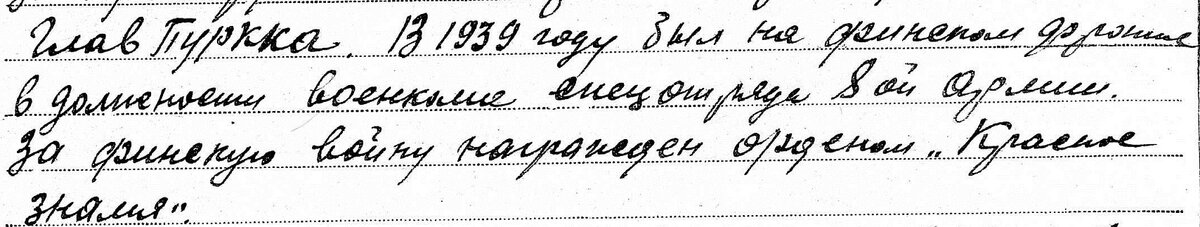 Глав Пуркка. В 1939 году был на финском фронте
в должности военкома спецотряда 8ой Армии.
За финскую войну награжден орденом „Красное
знамя".